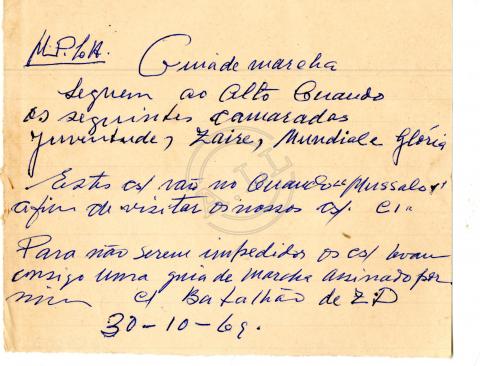 M.P.L.A.
Guia de marcha
Seguem ao Alto Cuando
os seguintes camaradas
Juventude, Zaire, Mundial e Glória
Estes c/ vão no Cuando "Mussalo"
afim de visitar os nossos c/.
Para não serem impedidos os c/ levam
consigo uma guia de marcha assinado por
mim c/ Batalhão de Z D
30-10-69.